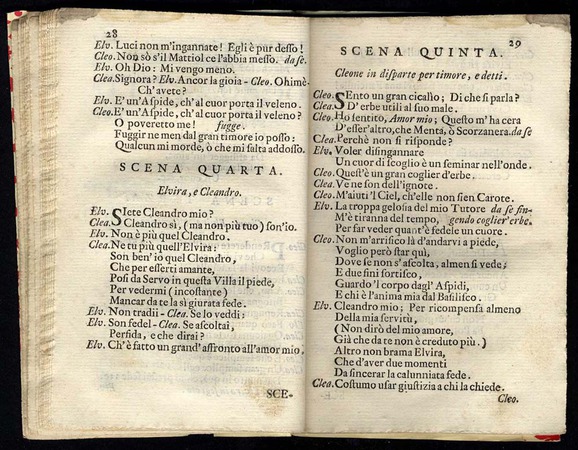 28
Elv. Luci non m'ingannate! Egli è pur desso!
Cleo. Non sò s'il Mattiol ce l'abbia messo. da se.
Elv. Oh Dio: Mi vengo meno.
Clea. Signora? Elv. Ancor la gioia - Cleo. Ohimè
Ch'avete?
Elv. E' un'Aspide, ch'al cuor porta il veleno.
Cleo. E' un'Aspide, ch'al cuor porta il veleno?
O poveretto me! fugge.
Fuggir ne men dal gran timore io posso:
Qualcun mi morde, ò che mi salta addosso.
SCENA QUARTA.
Elvira, e Cleandro.
Elv. Siete Cleandro mio?
Clea. Cleandro sì, (ma non più tuo) son'io.
Elv. Non è più quel Cleandro.
Clea. Ne tu più quell'Elvira:
Son ben' io quel Cleandro,
Che per esserti amante,
Posi da Servo in questa Villa il piede,
Per vedermi (incostante)
Mancar da te la sì giurata fede.
Elv. Non tradii - Clea. Se lo veddi:
Elv. Son fedel - Clea. Se ascoltai,
Perfida, e che dirai?
Elv. Ch'è fatto un grand' affronto all'amor mio.
SCE-
29
SCENA QUINTA.
Cleone in disparte per timore, e detti.
Cleo. Sento un gran cicalio; Di che si parla?
Clea. D'erbe utili al suo male.
Cleo. Ho sentito, Amor mio; Questo m'ha cera
D'esser'altro, che Menta, ò Scorzanera. da se
Clea. Perchè non si risponde?
Elv. Voler disingannare
Un cuor di scoglio è un seminar nell'onde.
Cleo. Quest'è un gran coglier d'erbe.
Clea. Ve ne son dell'ignote.
Cleo. M'aiuti 'l Ciel, ch'elle non sien Carote.
Elv. La troppa gelosia del mio Tutore da se fin-
M'è tiranna del tempo, gendo coglier'erbe.
Per far veder quant'è fedele un cuore.
Cleo. Non m'arrisico là d'andarvi a piede,
Voglio però star quì,
Dove se non s'ascolta, almen si vede;
E due fini sortisco,
Guardo 'l corpo dagl' Aspidi,
E chi è l'anima mia dal Basilisco.
Elv. Cleandro mio; Per ricompensa almeno
Della mia servitù,
(Non dirò del mio amore,
Già che da te non è creduto più.)
Altro non brama Elvira,
Che d'aver due momenti
Da sincerar la calunniata fede.
Clea. Costumo usar giustizia a chi la chiede.
Cleo.